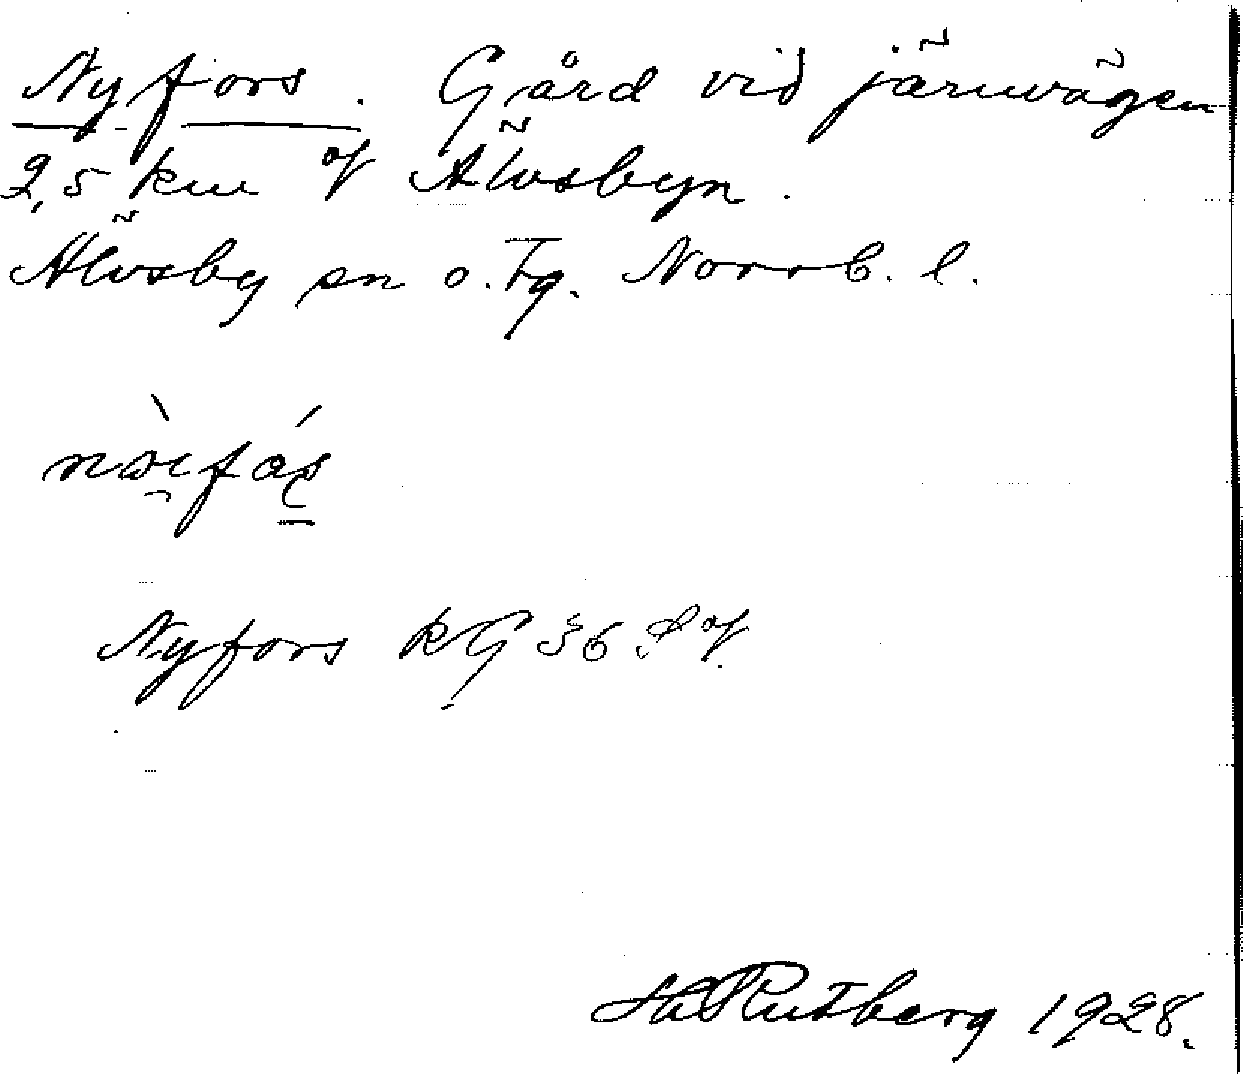 Nyfors. Gård vid järnvägen
2,5 km of Älvsbyn.
Älvsby sn o. Tg. Norrb. l.
Nyfors kG 36
Rutberg 1928.